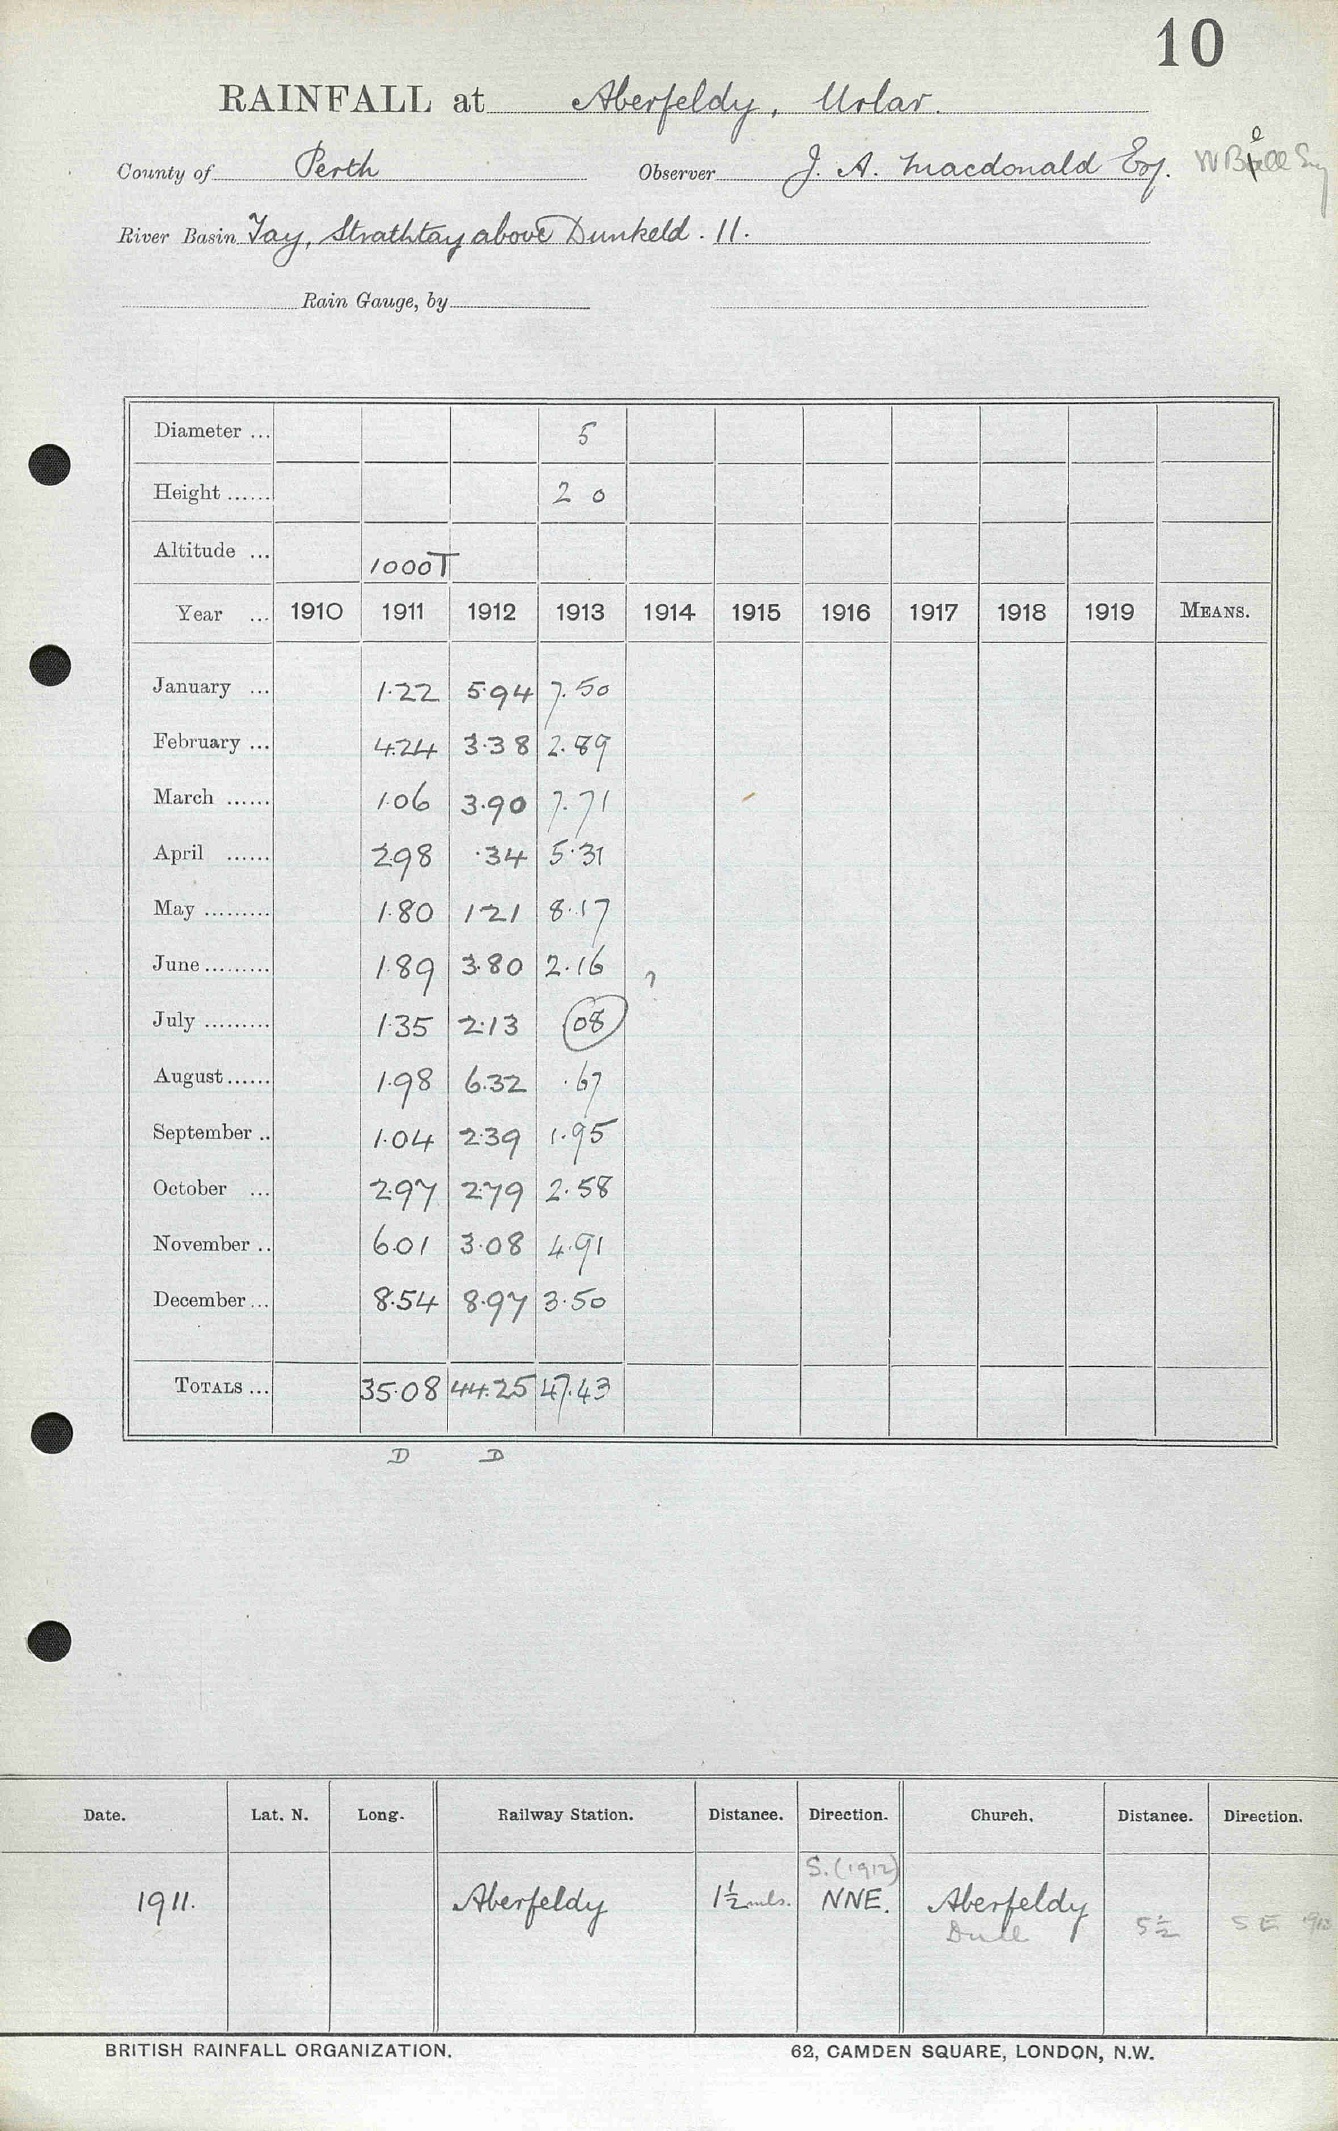 10
RAINFALL at Aberfeldy, Urlar.
County of Perth Observer J. A. Macdonald Esq.
River Basin Tay, Strathtay above Dunkeld. 11.
Rain Gauge, by
Diameter ... 5
Height ...... 2 0
Altitude ... 1000T
Year ... 1910 1911 1912 1913 1914 1915 1916 1917 1918 1919 MEANS.
January ... 1.22 5.94 7.50
February ... 4.24 3.38 2.89
March ...... 1.06 3.90 7.71
April ...... 2.98 .34 5.31
May ......... 1.80 1.21 8.17
June ......... 1.89 3.80 2.16 ?
July ......... 1.35 2.13 .08
August ...... 1.98 6.32 .67
September .. 1.04 2.39 1.95
October ... 2.97 2.79 2.58
November .. 6.01 3.08 4.91
December ... 8.54 8.97 3.50
TOTALS ... 35.08 44.25 47.43
D D
Date. Lat. N. Long. Railway Station. Distance. Direction. Church. Distance. Direction.
S. (1912)
1911. Aberfeldy 1½ mls. NNE. Aberfeldy
Dull 5½ S E
BRITISH RAINFALL ORGANIZATION. 62, CAMDEN SQUARE, LONDON, N.W.